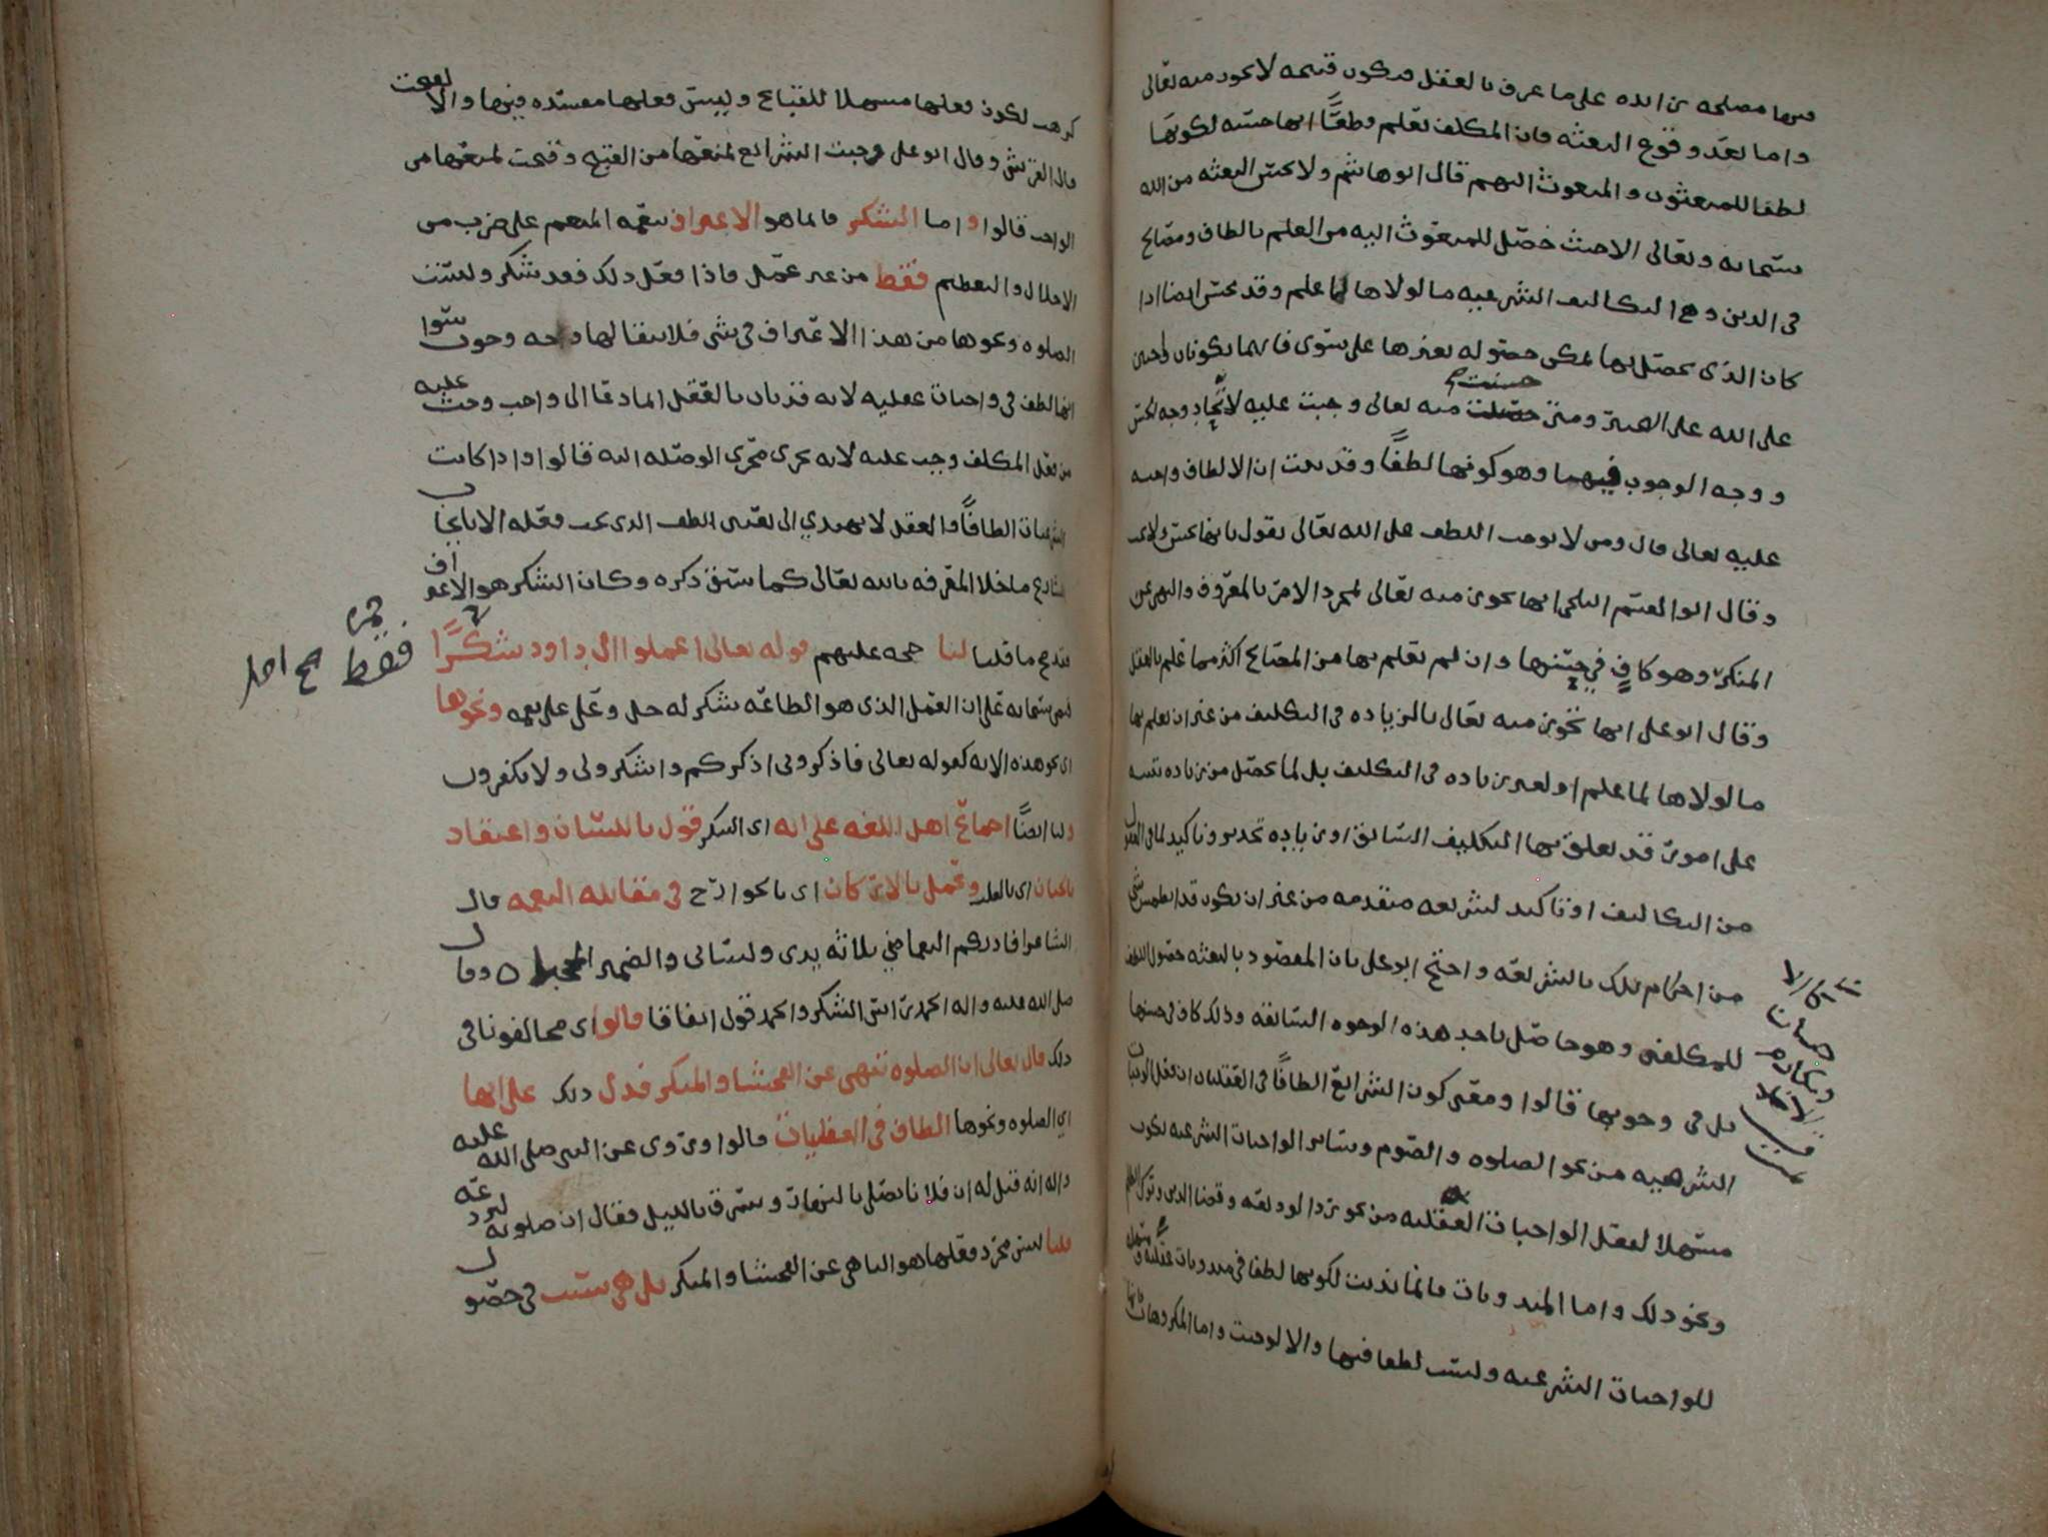 فيها مصلحه زايده على ما عرف بالعقل فتكون قبيحه لا تجوز منه تعالى
واما بعد وقوع البعثه فان المكلف يعلم قطعًا انها حسنه لكونها
لطفا للمبعثون والمبعوث اليهم قال ابو هاشم ولا تحسن البعثه من الله
سبحانه وتعالى الا حيث حصل للمبعوث اليه من العلم بالطاف ومصالح
في الدين وهي التكاليف الشرعيه ما لولاها لما علم وقد تحسن ايضا اذا
كان الذي يحصل بها يمكن حصوله بغيرها على سوى فانهما يكونان واجبين
على الله على التخيير ومتى حسنت منه تعالى وجبت عليه لاتحاد وجه الحسن
ووجه الوجوب فيهما وهو كونها لطفًا وقد ثبت ان الالطاف واجبه
عليه تعالى قال ومن لا يوجب اللطف على الله تعالى يقول بانها تحسن ولا تجب
وقال ابو القسم البلخي انها تجوز منه تعالى لمجرد الامر بالمعروف والنهي عن
المنكر وهو كافٍ في حسنها وان لم تعلم بها من المصالح اكثر مما علم بالعقل
وقال ابو علي انها تجوز منه تعالى بالزياده في التكليف من غير ان يعلم بها
ما لولاها لما علم او لغير زياده في التكليف بل لما يحصل من زياده تنبيه
على امور قد تعلق بها التكليف السابق او زياده تحذير وتاكيد لما في العقول
من التكاليف او تاكيد لشريعه متقدمه من غير ان يكون قد انطمس شي
من احكام تلك بالشريعه واحتج ابو علي بان المقصود بالبعثه حصول اللطف
للمكلفين وهو حاصل باحد هذه الوجوه السابقه وذلك كاف في حسنها
بل في وجوبها قالوا ومعنى كون الشرايع الطافًا في العقليات ان فعل الواجبات
الشرعيه من نحو الصلوه والصوم وساير الواجبات الشرعيه يكون
مسهلا لفعل الواجبات العقليه من نحو رد الوديعه وقضا الدين وترك الظلم
ونحو ذلك واما المندوبات فانما ندبت لكونها لطفا في مندوبات عقليه
للواجبات الشرعيه وليست لطفا فيها والا لوجبت واما المكروهات فانما
كرهت لكون فعلها مسهلا للقبائح وليس فعلها مفسده فيها والا لقبحت
قال القرشي وقال ابو علي وجبت الشرايع لمنعها من القبيح وقبحت لمنعها من
الواجب قالوا واما الشكر فانما هو الاعتراف بنعمه المنعم على ضرب من
الاجلال والتعظيم فقط من غير عمل فاذا فعل ذلك فقد شكر وليست
الصلوه ونحوها من هذا الاعتراف في شي فلا يقال لها وجه وجوب سوا
انها لطف في واجبات عقليه لانه قد بان بالعقل ان ما دعا الى واجب وحث عليه
من فعل المكلف وجب عليه لانه يجري مجرى الوصله اليه قالوا واذا كانت
الشرعيات الطافًا والعقل لا يهتدي الى تعيين اللطف الذي يجب فعله الا بايجاب
الشارع ما خلا المعرفه بالله تعالى كما سبق ذكره وكان الشكر هو الاعتراف
فقط صح اصل
صح ما قلنا لنا حجه عليهم قوله تعالى اعملوا ال داود شكرًا
فنص سبحانه على ان العمل الذي هو الطاعه شكر له جل وعلى على نعمه ونحوها
اي نحو هذه الايه كقوله تعالى فاذكروني اذكركم واشكروا لي ولا تكفرون
ولنا ايضًا اجماع اهل اللغه على انه اي الشكر قول باللسان واعتقاد
بالجنان اي بالقلب وعمل بالاركان اي بالجوارح في مقابله النعمه قال
الشاعر افادتكم النعما مني ثلاثه يدي ولساني والضمير المحجبا ٥ وقال
صلى الله عليه واله الحمد راس الشكر والحمد قول اتفاقا قالوا اي مخالفونا في
ذلك قال تعالى ان الصلوه تنهى عن الفحشا والمنكر فدل ذلك على انها
اي الصلوه ونحوها الطاف في العقليات قالوا وروي عن النبي صلى الله عليه
واله انه قيل له ان فلانا يصلي بالنهار ويسرق بالليل فقال ان صلوته لتردعه
قلنا ليس مجرد فعلها هو الناهي عن الفحشا والمنكر بل هي سبب في حصول